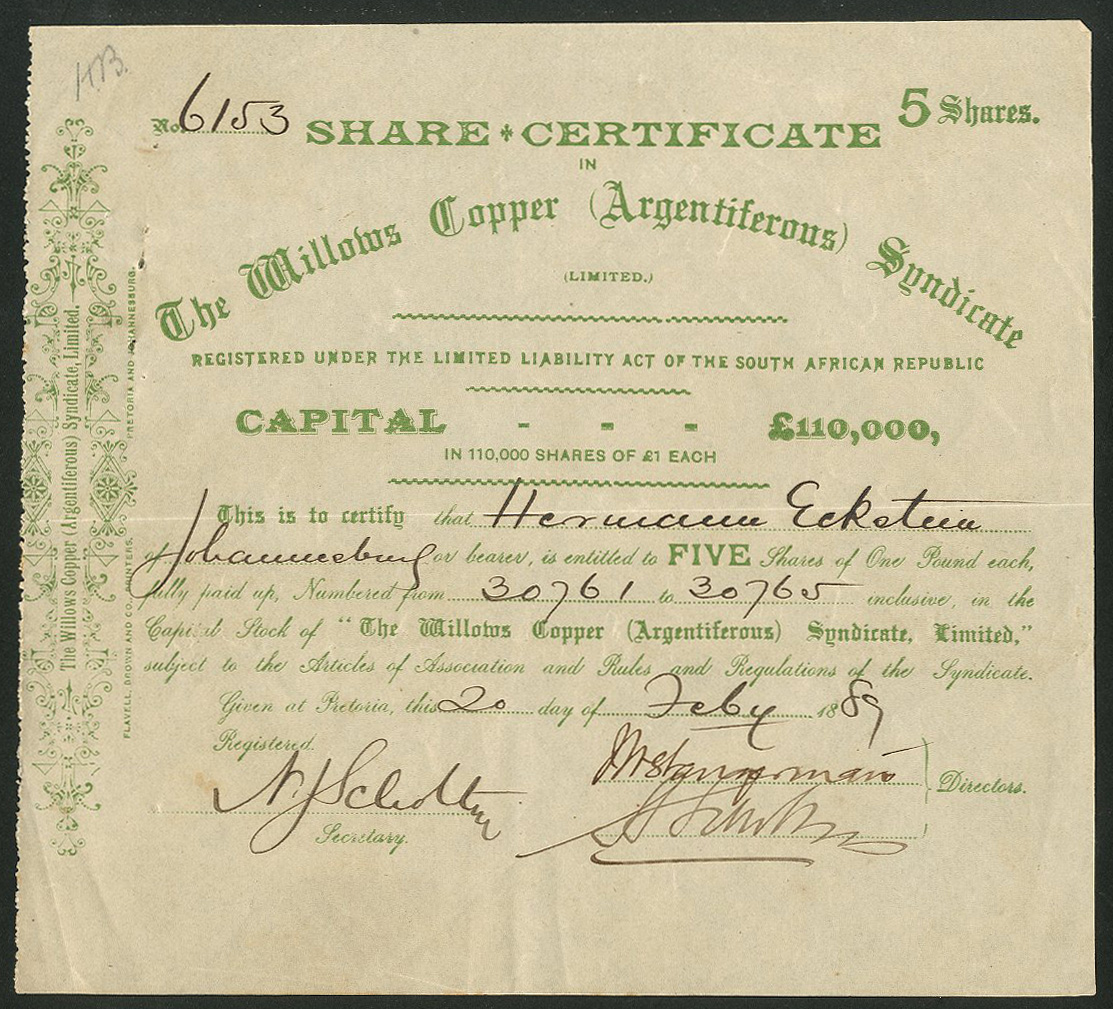 H.B.
No. 6153
5 Shares.
SHARE CERTIFICATE
IN
The Willows Copper (Argentiferous) Syndicate
(LIMITED.)
REGISTERED UNDER THE LIMITED LIABILITY ACT OF THE SOUTH AFRICAN REPUBLIC
CAPITAL - - - £110,000,
IN 110,000 SHARES OF £1 EACH
This is to certify that Hermann Eckstein
of Johannesburg or bearer, is entitled to FIVE Shares of One Pound each,
fully paid up, Numbered from 30761 to 30765 inclusive, in the
Capital Stock of "The Willows Copper (Argentiferous) Syndicate, Limited,"
subject to the Articles of Association and Rules and Regulations of the Syndicate.
Given at Pretoria, this 20 day of Feby 1889
Registered.
Directors.
Secretary.
The Willows Copper (Argentiferous) Syndicate, Limited.
FLAVELL, BROWN AND CO., PRINTERS, PRETORIA AND JOHANNESBURG.